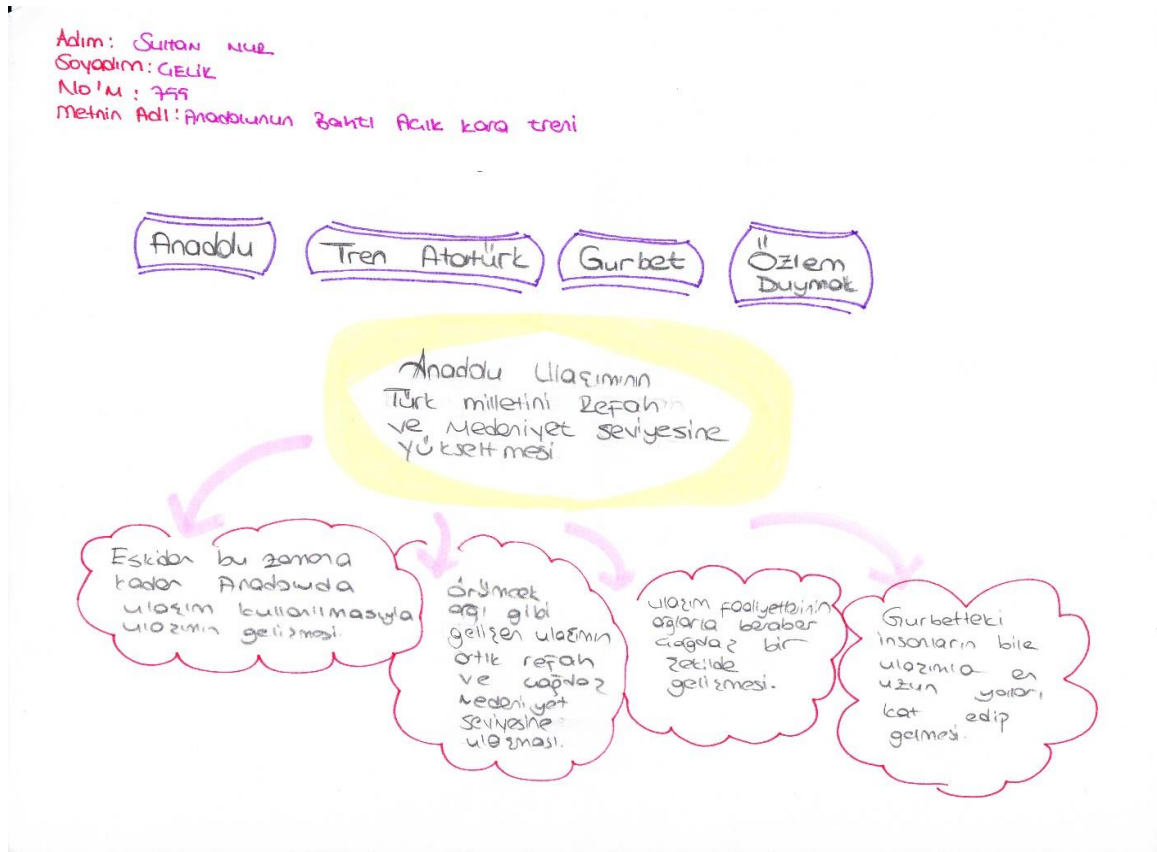 Adım: Sultan Nur
Soyadım: ÇELİK
No'M: 799
Metnin Adı: Anadolunun Bahtı Açık kara treni
Anadolu
Tren Atatürk
Gurbet
Özlem
Duymak
Anadolu Ulaşımının
Türk milletini Refah
ve Medeniyet seviyesine
yükseltmesi
Eskiden bu zamana
kadar Anadouda
ulaşım kullanılmasıyla
ulaşımın gelişmesi.
örümcek
ağı gibi
gelişen ulaşımın
artık refah
ve çağdaş
Medeniyet
seviyesine
ulaşması.
ulaşım faaliyetlerinin
ağlarla beraber
çağdaş bir
şekilde
gelişmesi.
Gurbetteki
insanların bile
ulaşımla en
uzun yolları
kat edip
gelmesi.